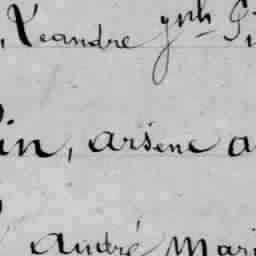 Leandre
in, arsene a
André Mari